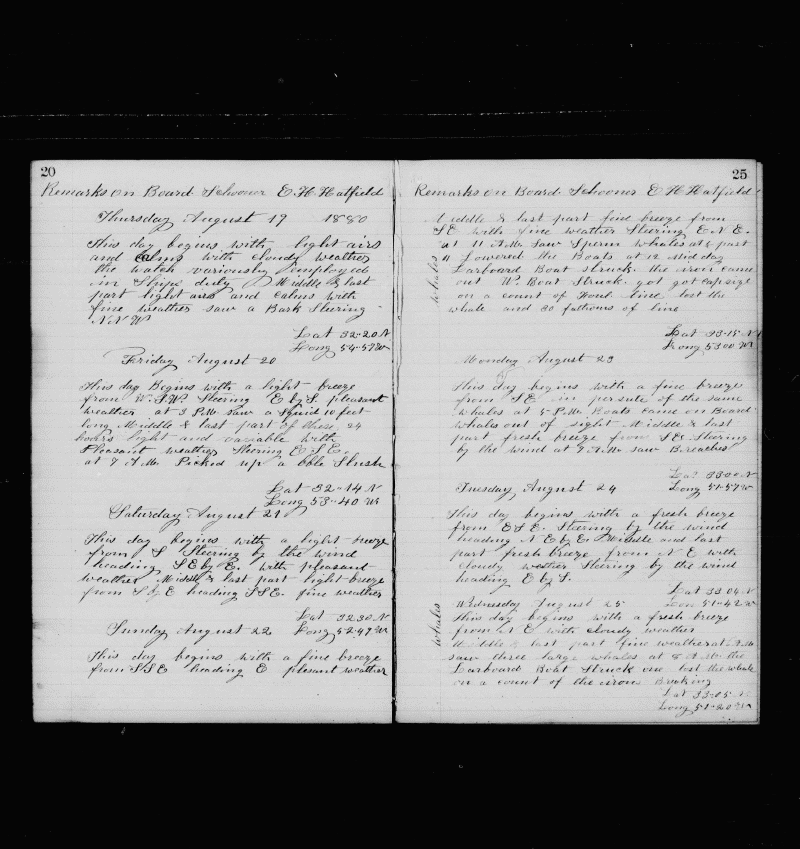 20
Remarks on Board Schooner E. H. Hatfield
Thursday August 19 1880
This day begins with light airs
and Calms with cloudy weather
the watch variously employed
in Ships duty Middle & last
part light airs and Calms with
fine weather saw a Bark Steering
N.N.W
Lat 32-20 N
Long 54-57 W
Friday August 20
This day Begins with a light breeze
from W.S.W. Steering E by S. pleasant
weather at 3 P.M. saw a Squid 10 feet
long Middle & last part of these 24
hours light and variable with
Pleasant weather Steering E S E.
at 7 A.M. Picked up a bble Slush
Lat 32-14 N
Long 53-40 W
Saturday August 21
This day begins with a light breeze
from S Steering by the wind
heading S E by E. with pleasant
weather Middle & last part light breeze
from S by E heading S S E. fine weather
Lat 32 30 N
Long 52-47 W
Sunday August 22
This day begins with a fine breeze
from S S E heading E plesant weather
25
Remarks on Board Schooner E H Hatfield
Middle & last part fine breeze from
S E with fine weather Steering E N E.
at 11 A.M. Saw Sperm Whales at part
11 Lowered the Boats at 12 Mid day
Larboard Boat struck. the iron came
out W. Boat Struck. got got capsize
on a count of line lost the
whale and 20 fathoms of line
whales
Lat 33-15 N
Long 53 00 W
Monday August 23
This day begins with a fine breeze
from S E in persute of the same
whales at 5 P.M. Boats came on Board
whales out of sight Middle & last
part fresh breeze from S E. Steering
by the wind at 7 A.M. saw Breaches
Lat 33 00 N
Long 51-57 W
Tuesday August 24
This day begins with a fresh breeze
from E S E. Steering by the wind
heading N E by E. Middle and last
part fresh breeze from N E with
cloudy weather Steering by the wind
heading E by S.
Lat 33 04 N
Lon 51-42 W
Wednesday August 25
This day begins with a fresh breeze
from N E with cloudy weather
Middle & last part fine weather at A.M.
saw three large whales at 8 A.M. the
Larboard Boat Struck one lost the whale
on a count of the irons Breaking
whales
Lat 33-05 N
Long 51-20 W